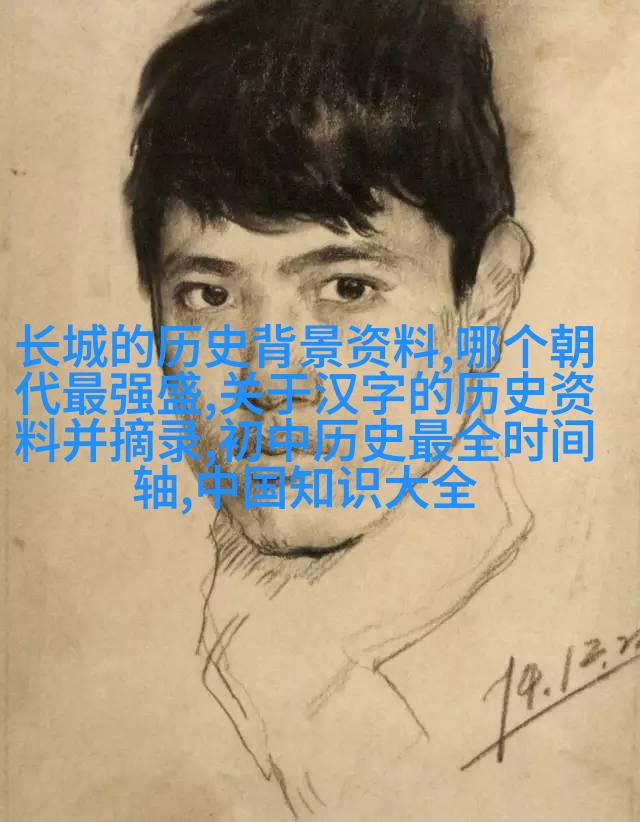 长城的历史背景资料,哪个朝
代最强盛,关于汉字的历史资
料并摘录,初中历史最全时间
轴,中国知识大全